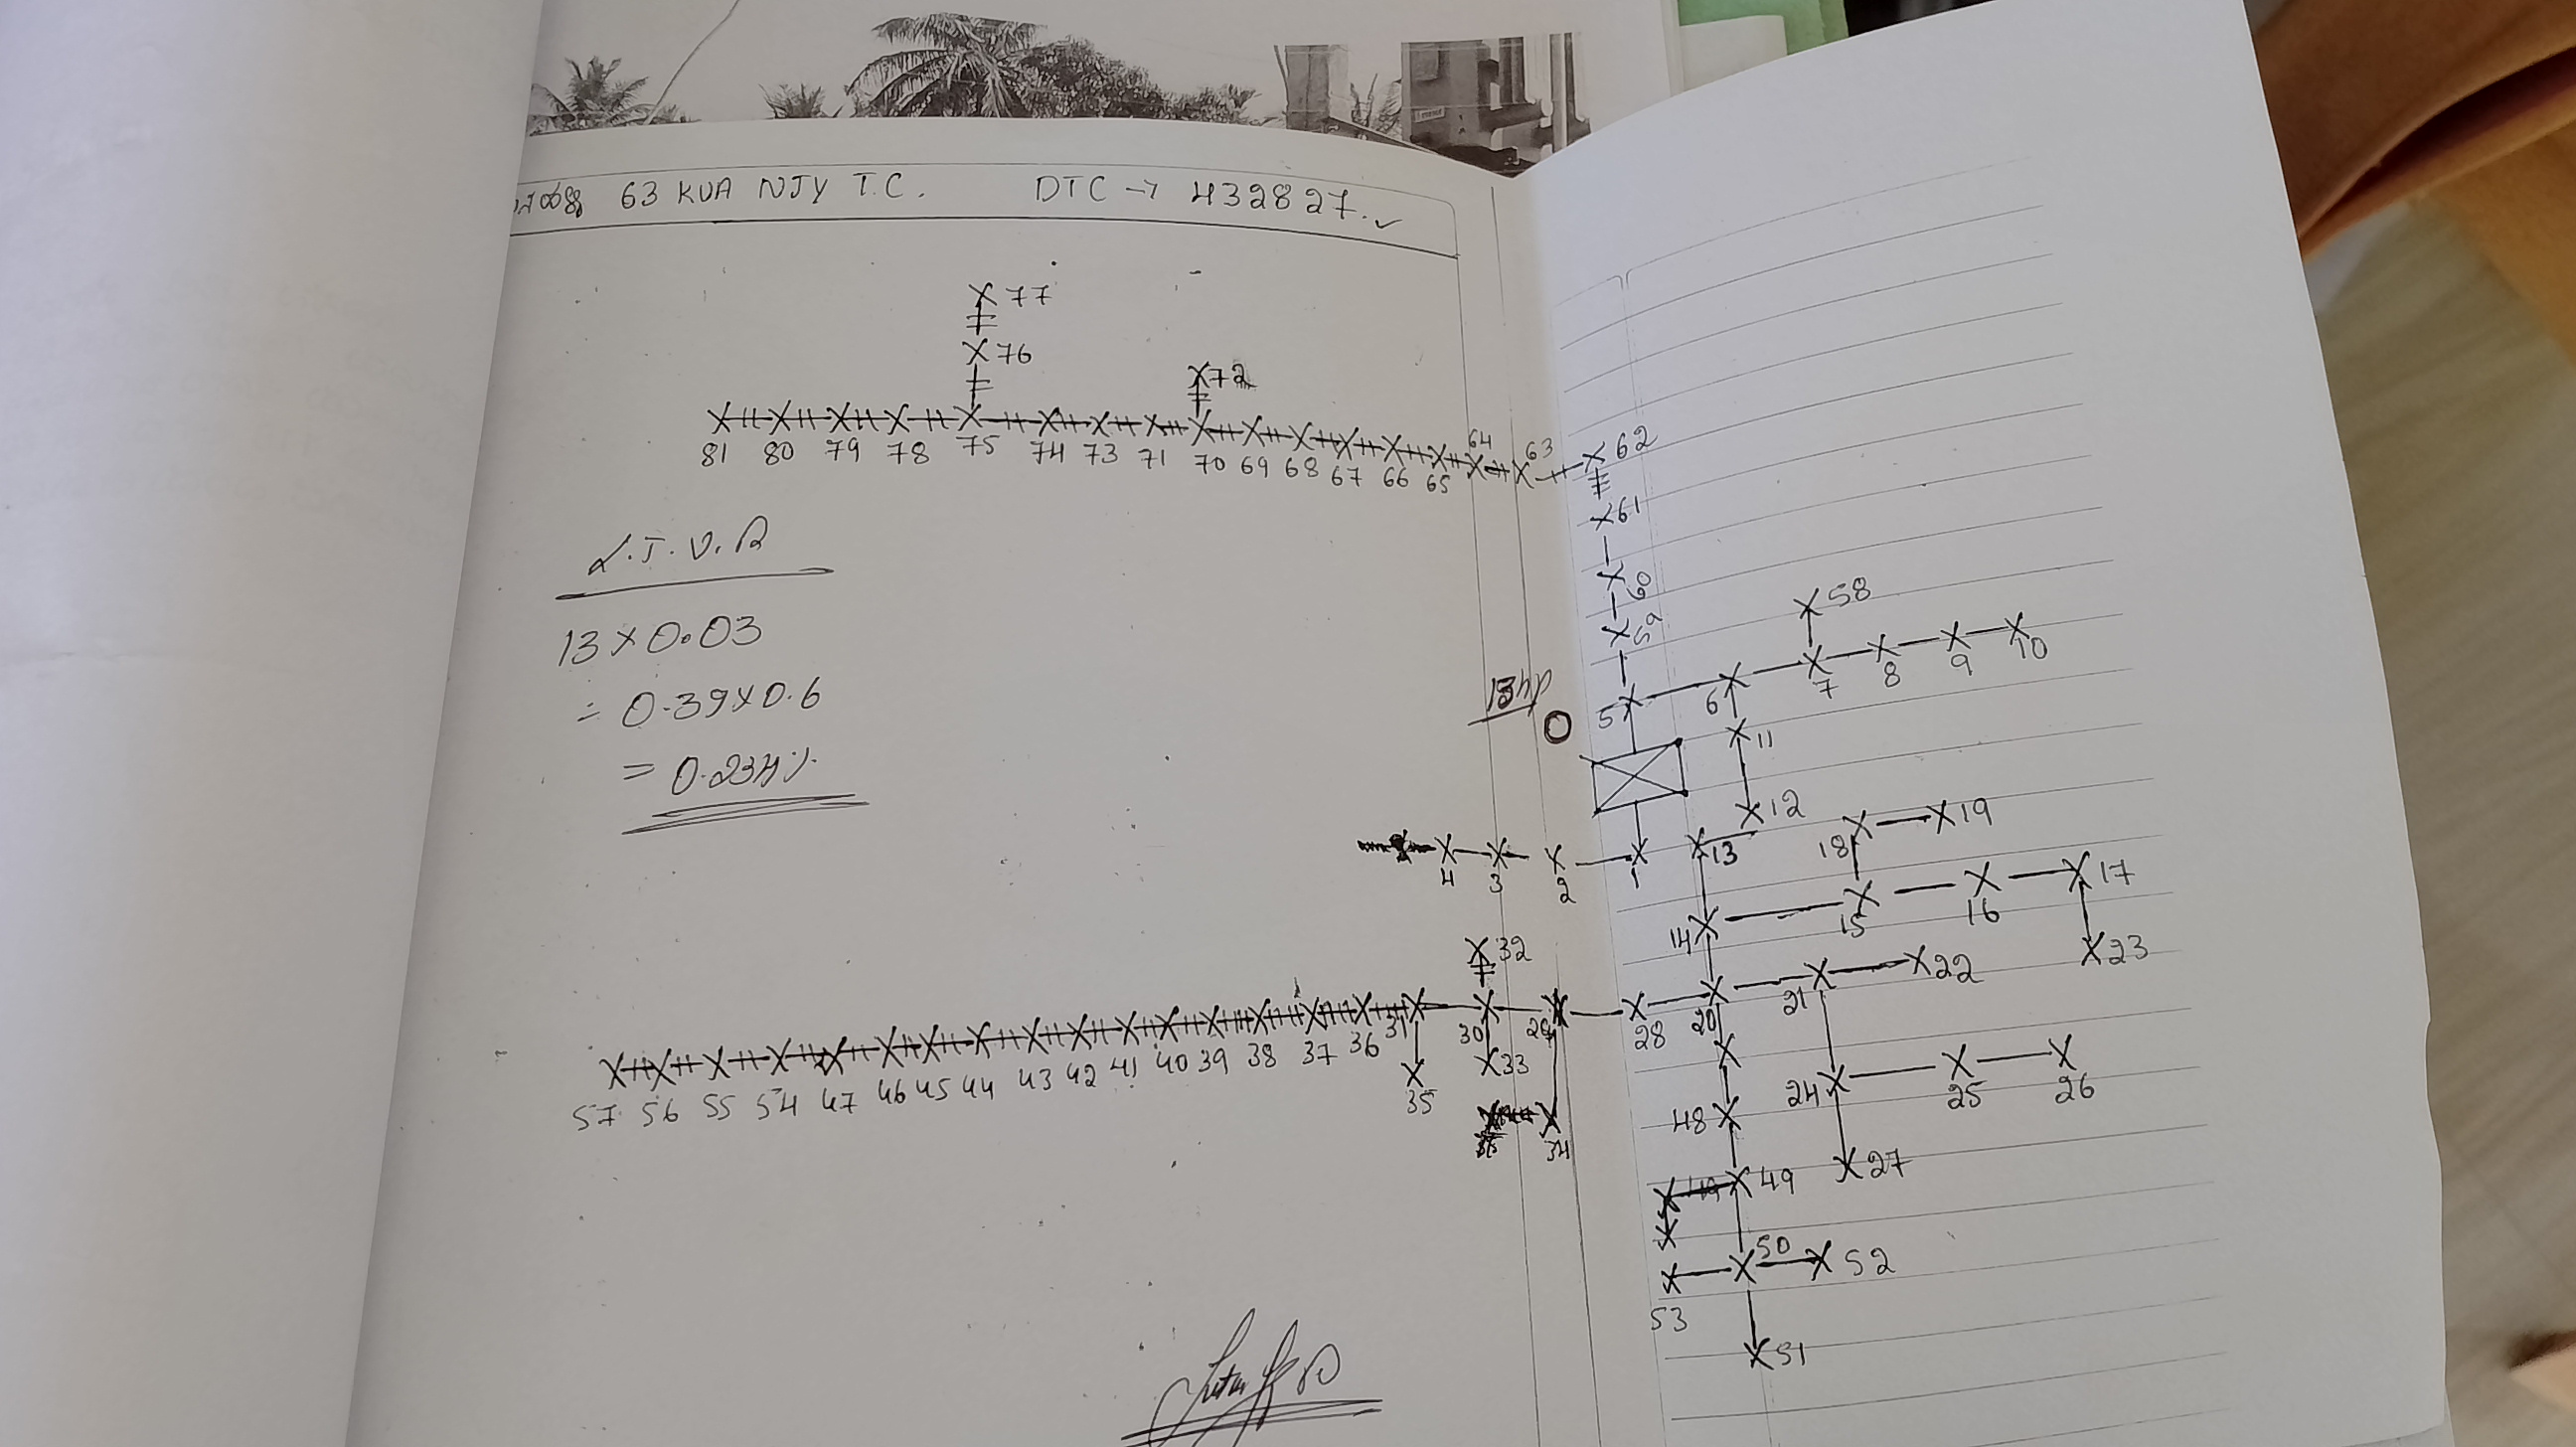 63 KVA NJY T.C. DTC → 432827.
77
76
72
81 80 79 78 75 74 73 71 70 69 68 67 66 65 64 63 62
61
60
59
58
5 6 7 8 9 10
11
12
L.T.V.R
13 x 0.03
= 0.39 x 0.6
= 0.234%
13hp
4 3 2 1 13
18 19
14 15 16 17
23
32
57 56 55 54 47 46 45 44 43 42 41 40 39 38 37 36 31 30 29 28 20 21 22
35 33
34
24 25 26
48 27
49
50 52
53
51